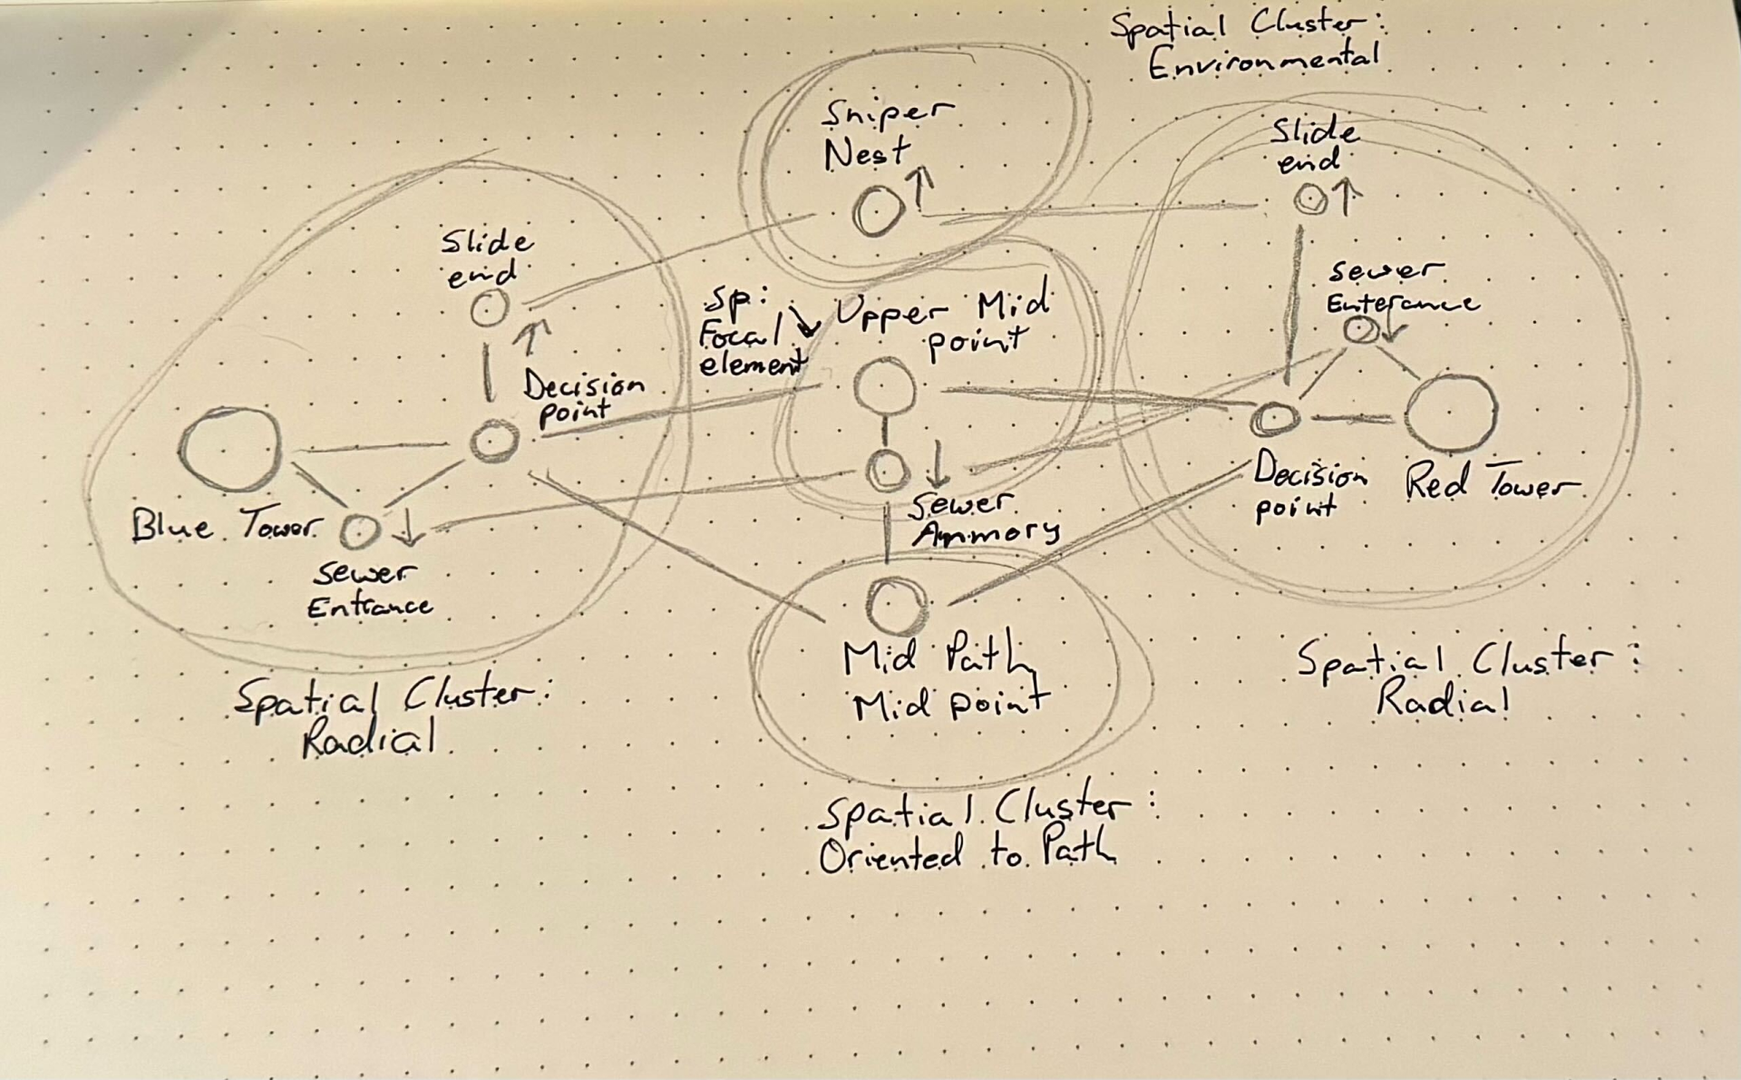 Spatial Cluster:
Environmental
Sniper
Nest
Slide
end
Slide
end
Sewer
Enterance
Sp:
Focal
element
Upper Mid
point
Decision
point
Blue Tower
Sewer
Entrance
Sewer
Ammory
Decision
point
Red Tower
Mid Path
Mid point
Spatial Cluster:
Radial
Spatial Cluster:
Radial
Spatial Cluster:
Oriented to Path